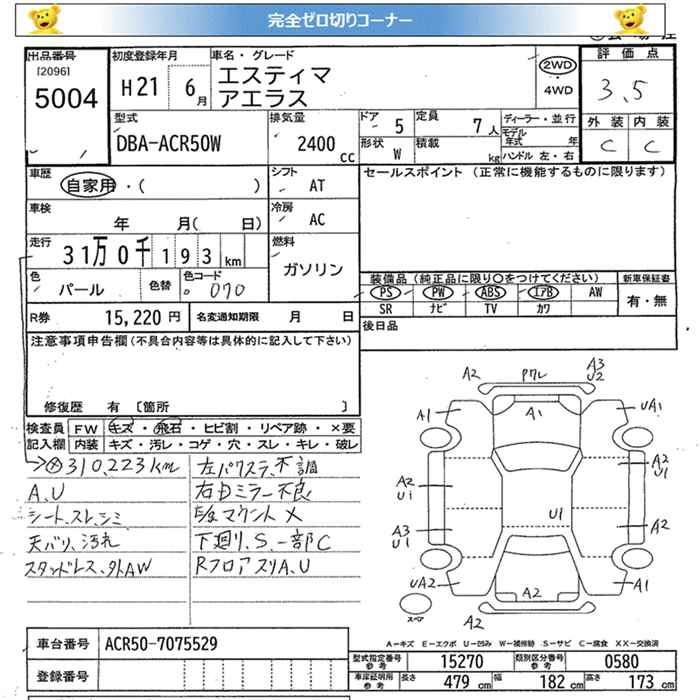 完全ゼロ切りコーナー
出品番号 初度登録年月 車名・グレード 評価点
[2096] H21 6月 エスティマ 2WD 3.5
5004 アエラス 4WD
型式 排気量 ドア 5 定員 7人 ディーラー・並行 外装 内装
DBA-ACR50W 2400cc 形状 W 積載 kg モデル年式 年 C C
ハンドル 左・右
車歴 自家用・( ) シフト AT セールスポイント (正常に機能するものに限ります)
車検 年 月( 日) 冷房 AC
走行 31万0千193km 燃料 ガソリン
色 パール 色替 色コード 070 装備品 (純正品に限り〇をつけてください) 新車保証書
PS PW ABS エアB AW 有・無
SR ナビ TV カワ
R券 15,220円 名変通知期限 月 日 後日品
注意事項申告欄(不具合内容等は具体的に記入して下さい)
修復歴 有 [箇所 ]
検査員 FW キズ・飛石・ヒビ割・リペア跡・×要
記入欄 内装 キズ・汚レ・コゲ・穴・スレ・キレ・破レ
310,223km 左パワステ、不調
A、U 右自ミラー不良
シート、スレ、シミ マウント X
天バリ、汚れ 下廻リ、S、一部C
スタッドレス、外AW RフロアスリA、U
A2 A3
U2
A1 A1 UA1
A2 A2
U1 U1
U1
A3 A2
U1
UA2 A2 A1
スペア A2
A-キズ E-エクボ U-凹み W-補修跡 S-サビ C-腐食 XX-交換済
車台番号 ACR50-7075529 型式指定番号 参考 15270 類別区分番号 参考 0580
登録番号 車庫証明用 参考 長さ 479cm 幅 182cm 高さ 173cm